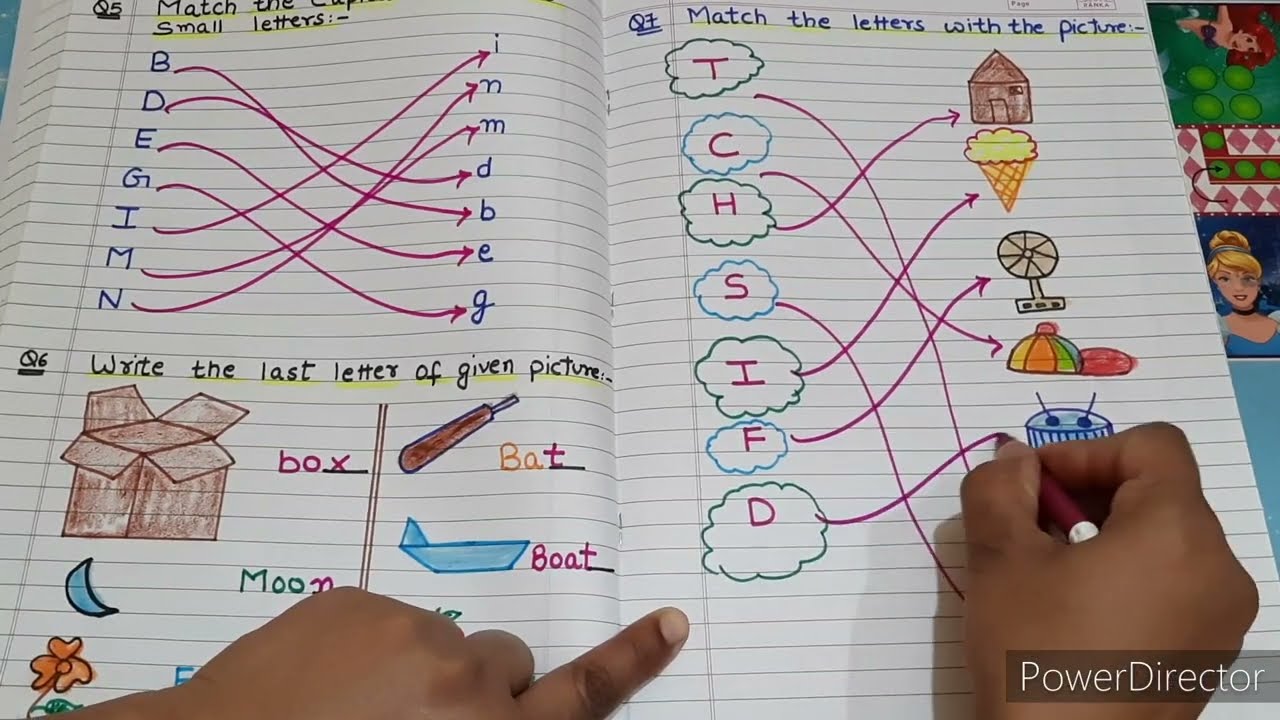 Q5 Match the
Small letters:-
B i
D n
E m
G d
I b
M e
N g
Q6 Write the last letter of given picture:-
box Bat
Boat
Moon
Q7 Match the letters with the picture:-
T
C
H
S
I
F
D
Page
PowerDirector